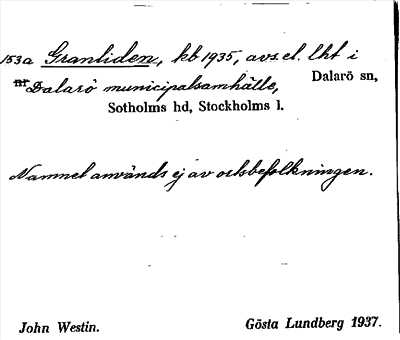 153a Granliden, kb 1935, avs. el. lht i
Dalarö municipalsamhälle, Dalarö sn,
Sotholms hd, Stockholms l.
Namnet används ej av ortsbefolkningen.
John Westin. Gösta Lundberg 1937.